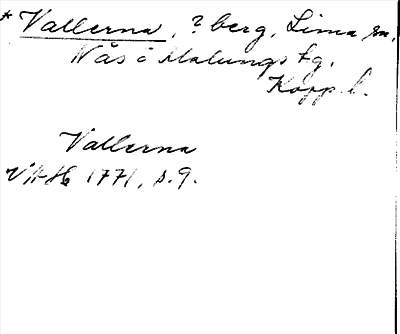 * Vallerna, ? berg, Lima sn,
Nås o Malungs tg.
Kopp. l.
Vallerna
1771, s. 9.